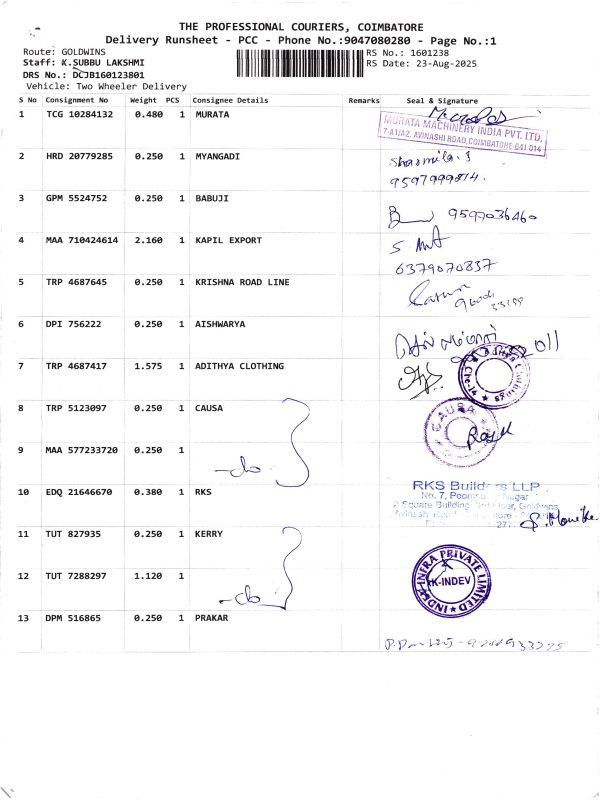 THE PROFESSIONAL COURIERS, COIMBATORE
Delivery Runsheet - PCC - Phone No.:9047080280 - Page No.:1
Route: GOLDWINS
RS No.: 1601238
Staff: K.SUBBU LAKSHMI
RS Date: 23-Aug-2025
DRS No.: DCJB160123801
Vehicle: Two Wheeler Delivery
S No Consignment No Weight PCS Consignee Details Remarks Seal & Signature
1 TCG 10284132 0.480 1 MURATA
MURATA MACHINERY INDIA PVT. LTD,
7-A1/A2, AVINASHI ROAD, COIMBATORE-641 014
2 HRD 20779285 0.250 1 MYANGADI
Sharmila.S
9597999814.
3 GPM 5524752 0.250 1 BABUJI
9597036460
4 MAA 710424614 2.160 1 KAPIL EXPORT
6379070837
5 TRP 4687645 0.250 1 KRISHNA ROAD LINE
6 DPI 756222 0.250 1 AISHWARYA
7 TRP 4687417 1.575 1 ADITHYA CLOTHING
8 TRP 5123097 0.250 1 CAUSA
CAUSA
9 MAA 577233720 0.250 1
-do
10 EDQ 21646670 0.380 1 RKS
RKS Builders LLP
No. 7, Nagar
Square Building Goldwins
11 TUT 827935 0.250 1 KERRY
12 TUT 7288297 1.120 1
-do
INDEV INFRA PRIVATE LIMITED
K-INDEV
13 DPM 516865 0.250 1 PRAKAR